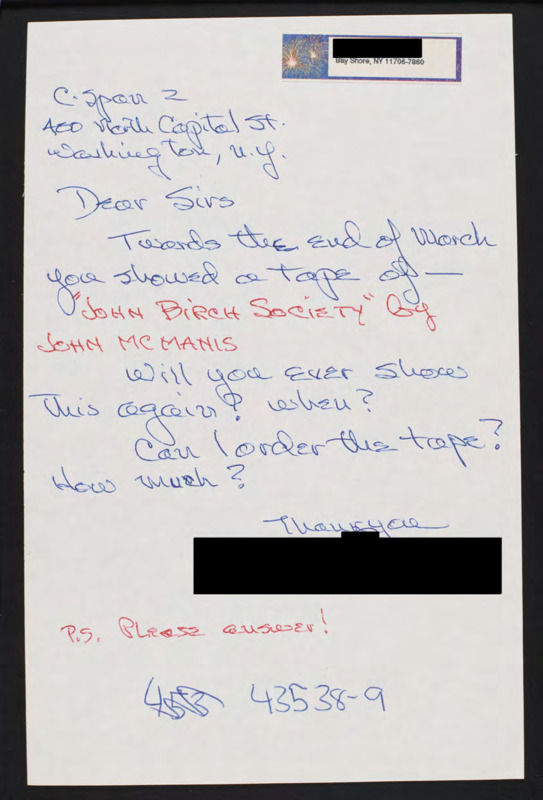 Bay Shore, NY 11706-7860
C-Span 2
400 North Capital St.
Washington, N.Y.
Dear Sirs
Twards the end of March
you showed a tape of —
"JOHN BIRCH SOCIETY" by
JOHN MCMANIS
Will you ever show
This again? when?
Can I order the tape?
How much?
Thankyou
P.S. Please answer!
43538-9